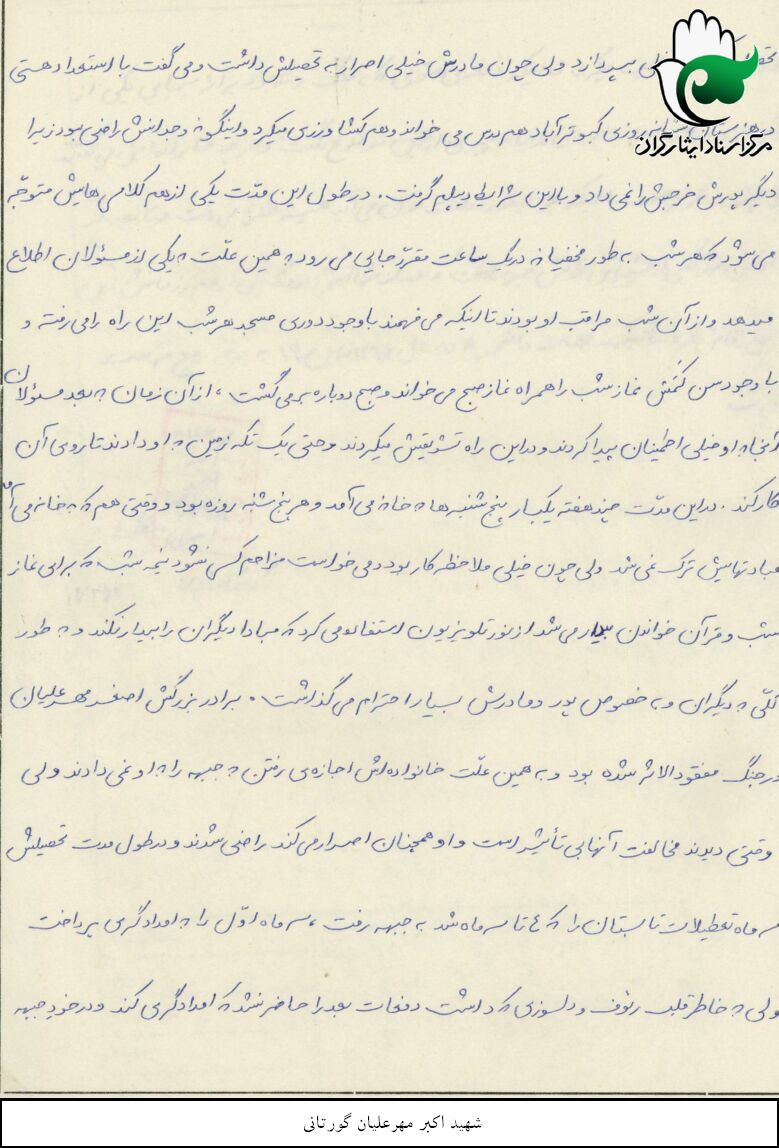 بپردازد ولی چون مادرش خیلی اصرار به تحصیلش داشت و می گفت با استعداد هستی
مرکز اسناد ایثارگران
روزی کبوترآباد هم درس می خواند و هم کشاورزی میکرد و اینگونه وجدانش راضی بود زیرا
دیگر پدرش خرجش را نمی داد و با این شرایط دیپلم گرفت . در طول این مدّت یکی از هم کلاسی هایش متوجّه
می شود که هر شب به طور مخفیانه در یک ساعت مقرّر جایی می رود به همین علّت به یکی از مسئولان اطلاع
میدهد و از آن شب مراقب او بودند تا اینکه می فهمند با وجود دوری مسجد هر شب این راه را می رفته و
با وجود سن کمش نماز شب را همراه نماز صبح می خواند و صبح دوباره بر می گشت ، از آن زمان به بعد مسئولان
آنجا به او خیلی اطمینان پیدا کردند و در این راه تشویقش میکردند و حتی یک تکه زمین به او دادند تا روی آن
کار کند . در این مدّت چند هفته یکبار پنج شنبه ها به خانه می آمد و هر پنج شنبه روزه بود و وقتی هم که به خانه می آمد
عبادتهایش ترک نمی شد ولی چون خیلی ملاحظه کار بود و می خواست مزاحم کسی نشود نیمه شب که برای نماز
شب و قرآن خواندن بیدار می شد از نور تلویزیون استفاده می کرد که مبادا دیگران را بیدار نکند و به طور
کلّی به دیگران و به خصوص پدر و مادرش بسیار احترام می گذاشت . برادر بزرگش اصغر مهرعلیان
در جنگ مفقودالاثر شده بود و به همین علّت خانواده اش اجازه ی رفتن به جبهه را به او نمی دادند ولی
وقتی دیدند مخالفت آنها بی تأثیر است و او همچنان اصرار می کند راضی شدند و در طول مدت تحصیلش
سه ماه تعطیلات تابستان را که ٤ تا سه ماه شد به جبهه رفت ، سه ماه اوّل را به امدادگری پرداخت
ولی به خاطر قلب رئوف و دلسوزی که داشت دفعات بعد را حاضر نشد که امدادگری کند و در خود جبهه
شهید اکبر مهرعلیان گورتانی